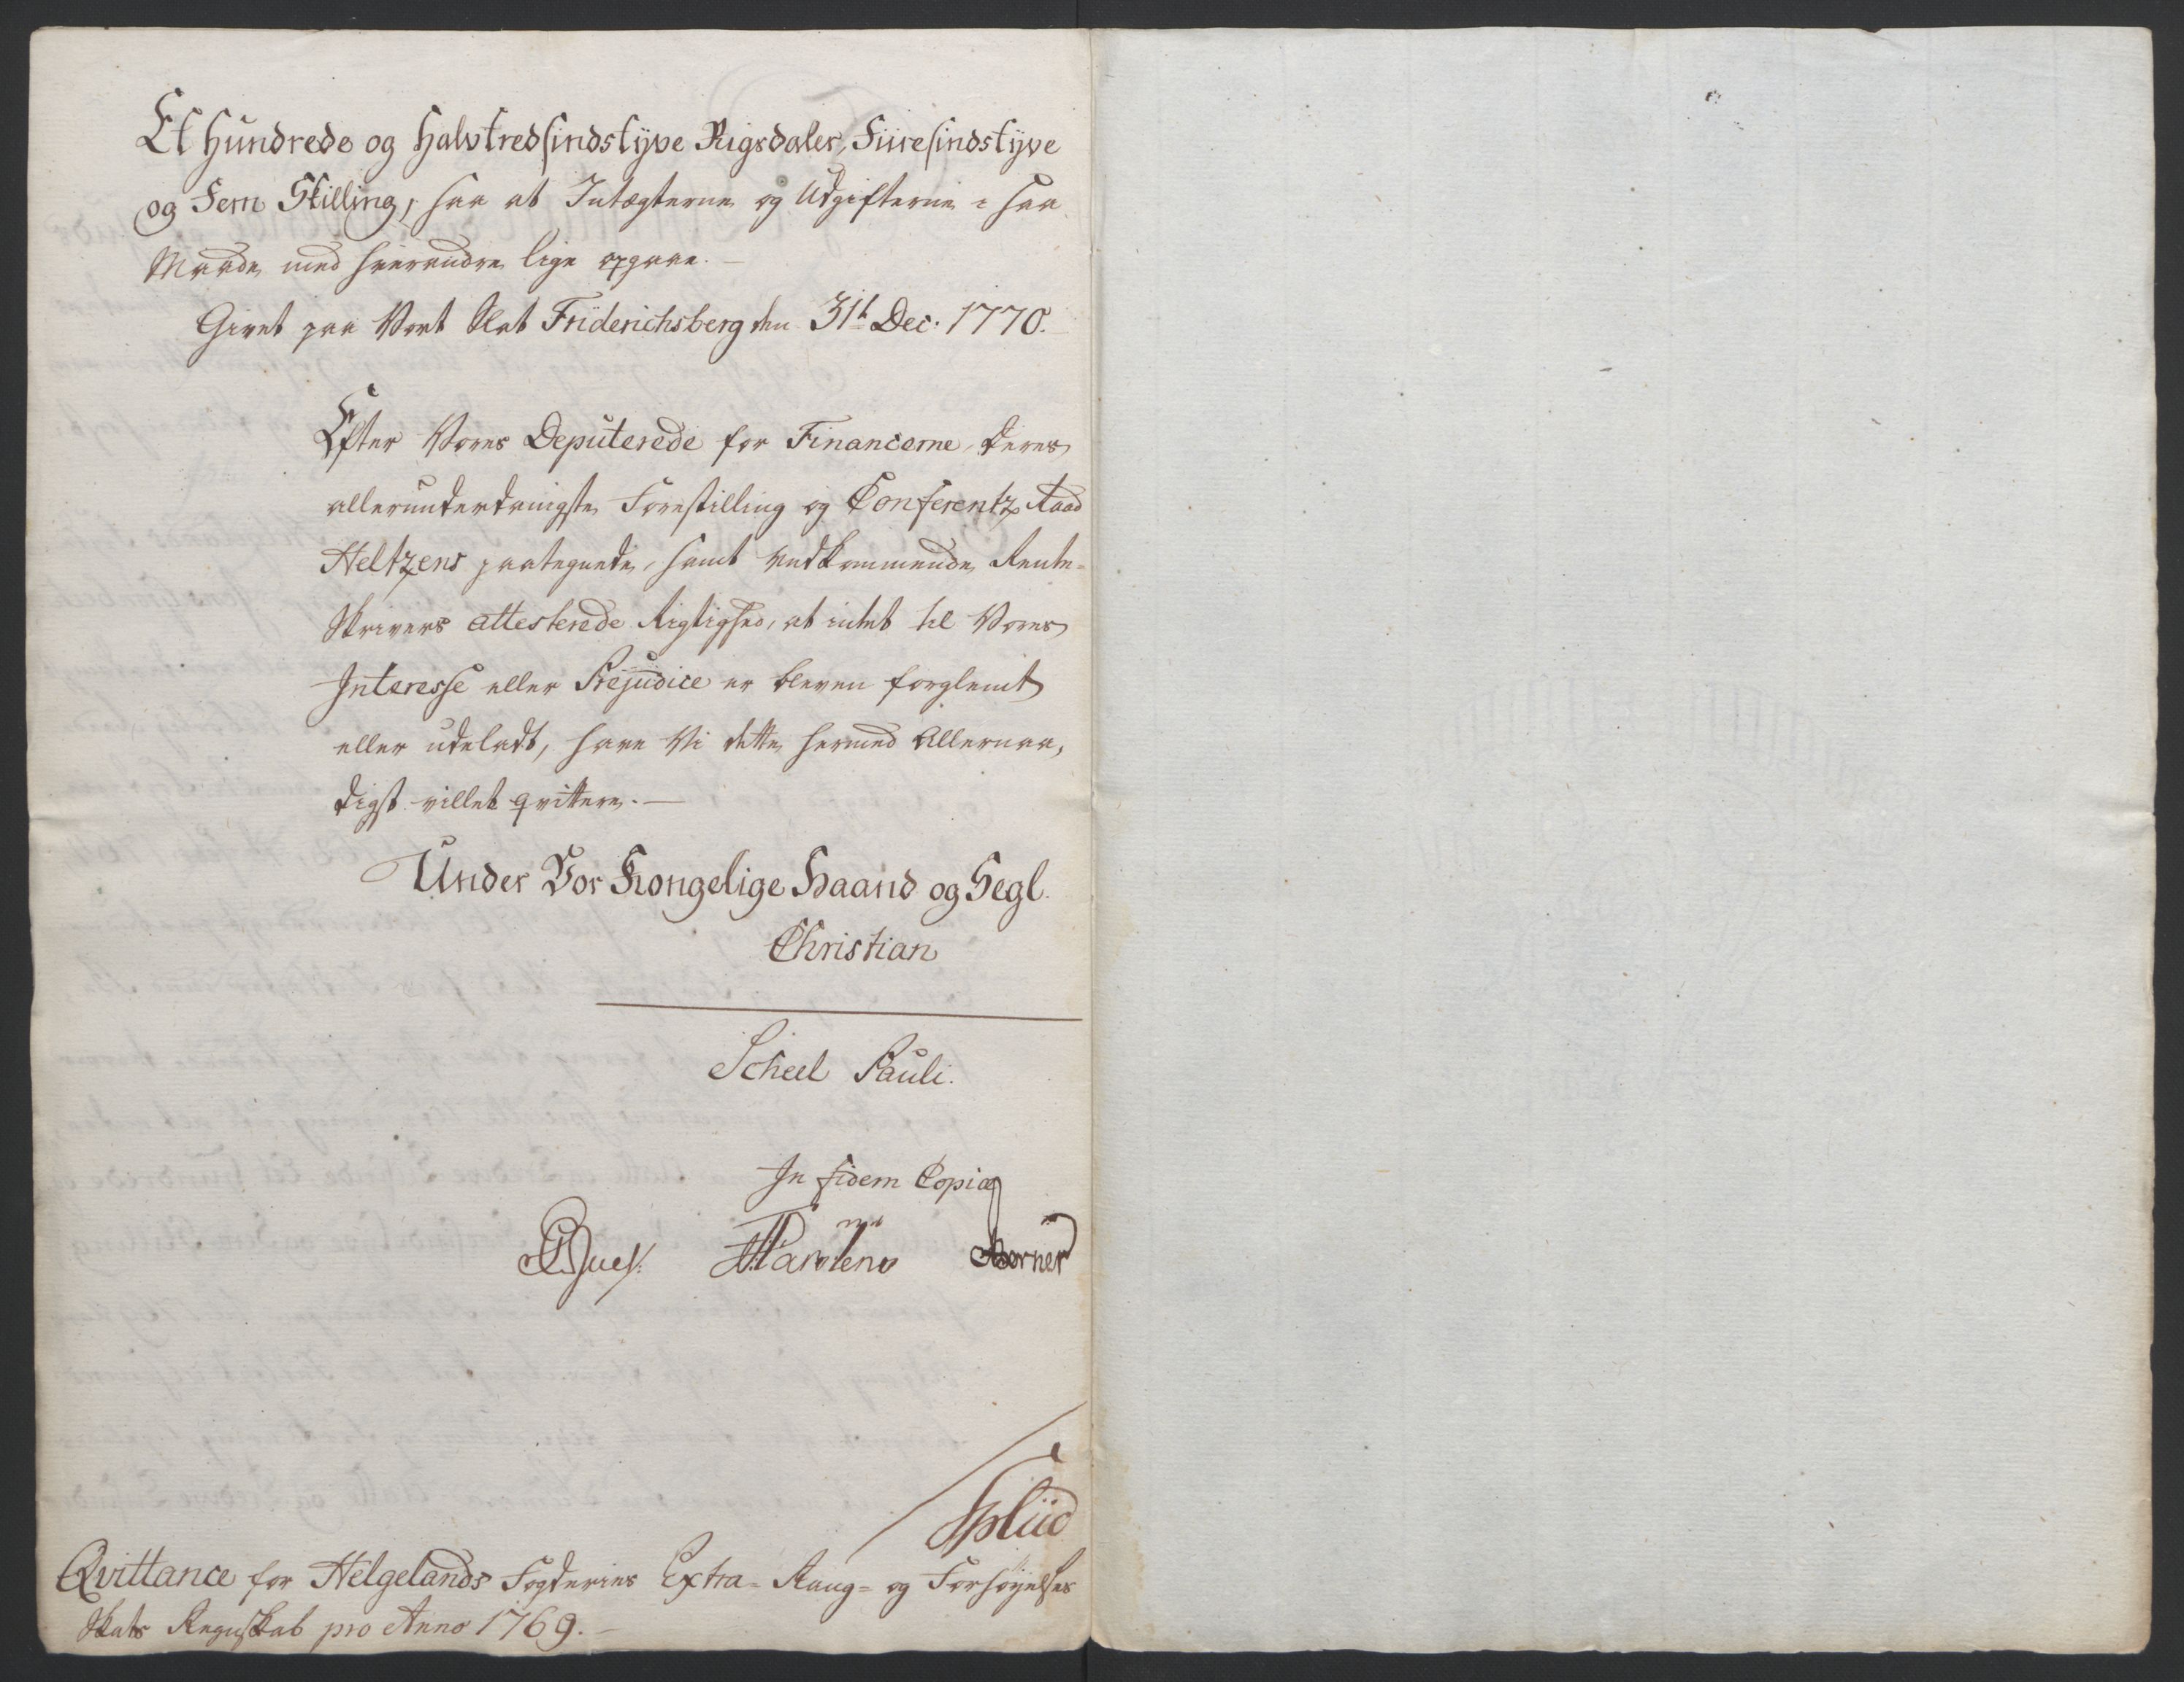 Et Hundrede og Halvtredsindstÿve Rigsdaler, Fiiresindstÿve
og Fem Skilling, saa at Indtægterne og Udgifterne i saa
Maade med hverandre lige opgaae. —
Givet paa Vort Slot Friderichsberg den 31t Dec. 1770.
Efter Vores Deputerede for Financerne, deres
allerunderdanigste Forestilling og Conferentz Raad
Heltzens paategnede, samt vedkommende Rente-
skrivers attesterede Rigtighed, at intet til Vores
Interesse eller Prejudice er bleven forglemt
eller udeladt, have Vi dette hermed Allernaa-
digst villet qvittere. —
Under Vor Kongelige Haand og Segl.
Christian
Scheel Pauli.
In fidem Copiæ
Børner
Qvittance for Helgelands Fogderies Extra- Rang- og Forhøyelses
Skats Regnskab pro Anno 1769. —